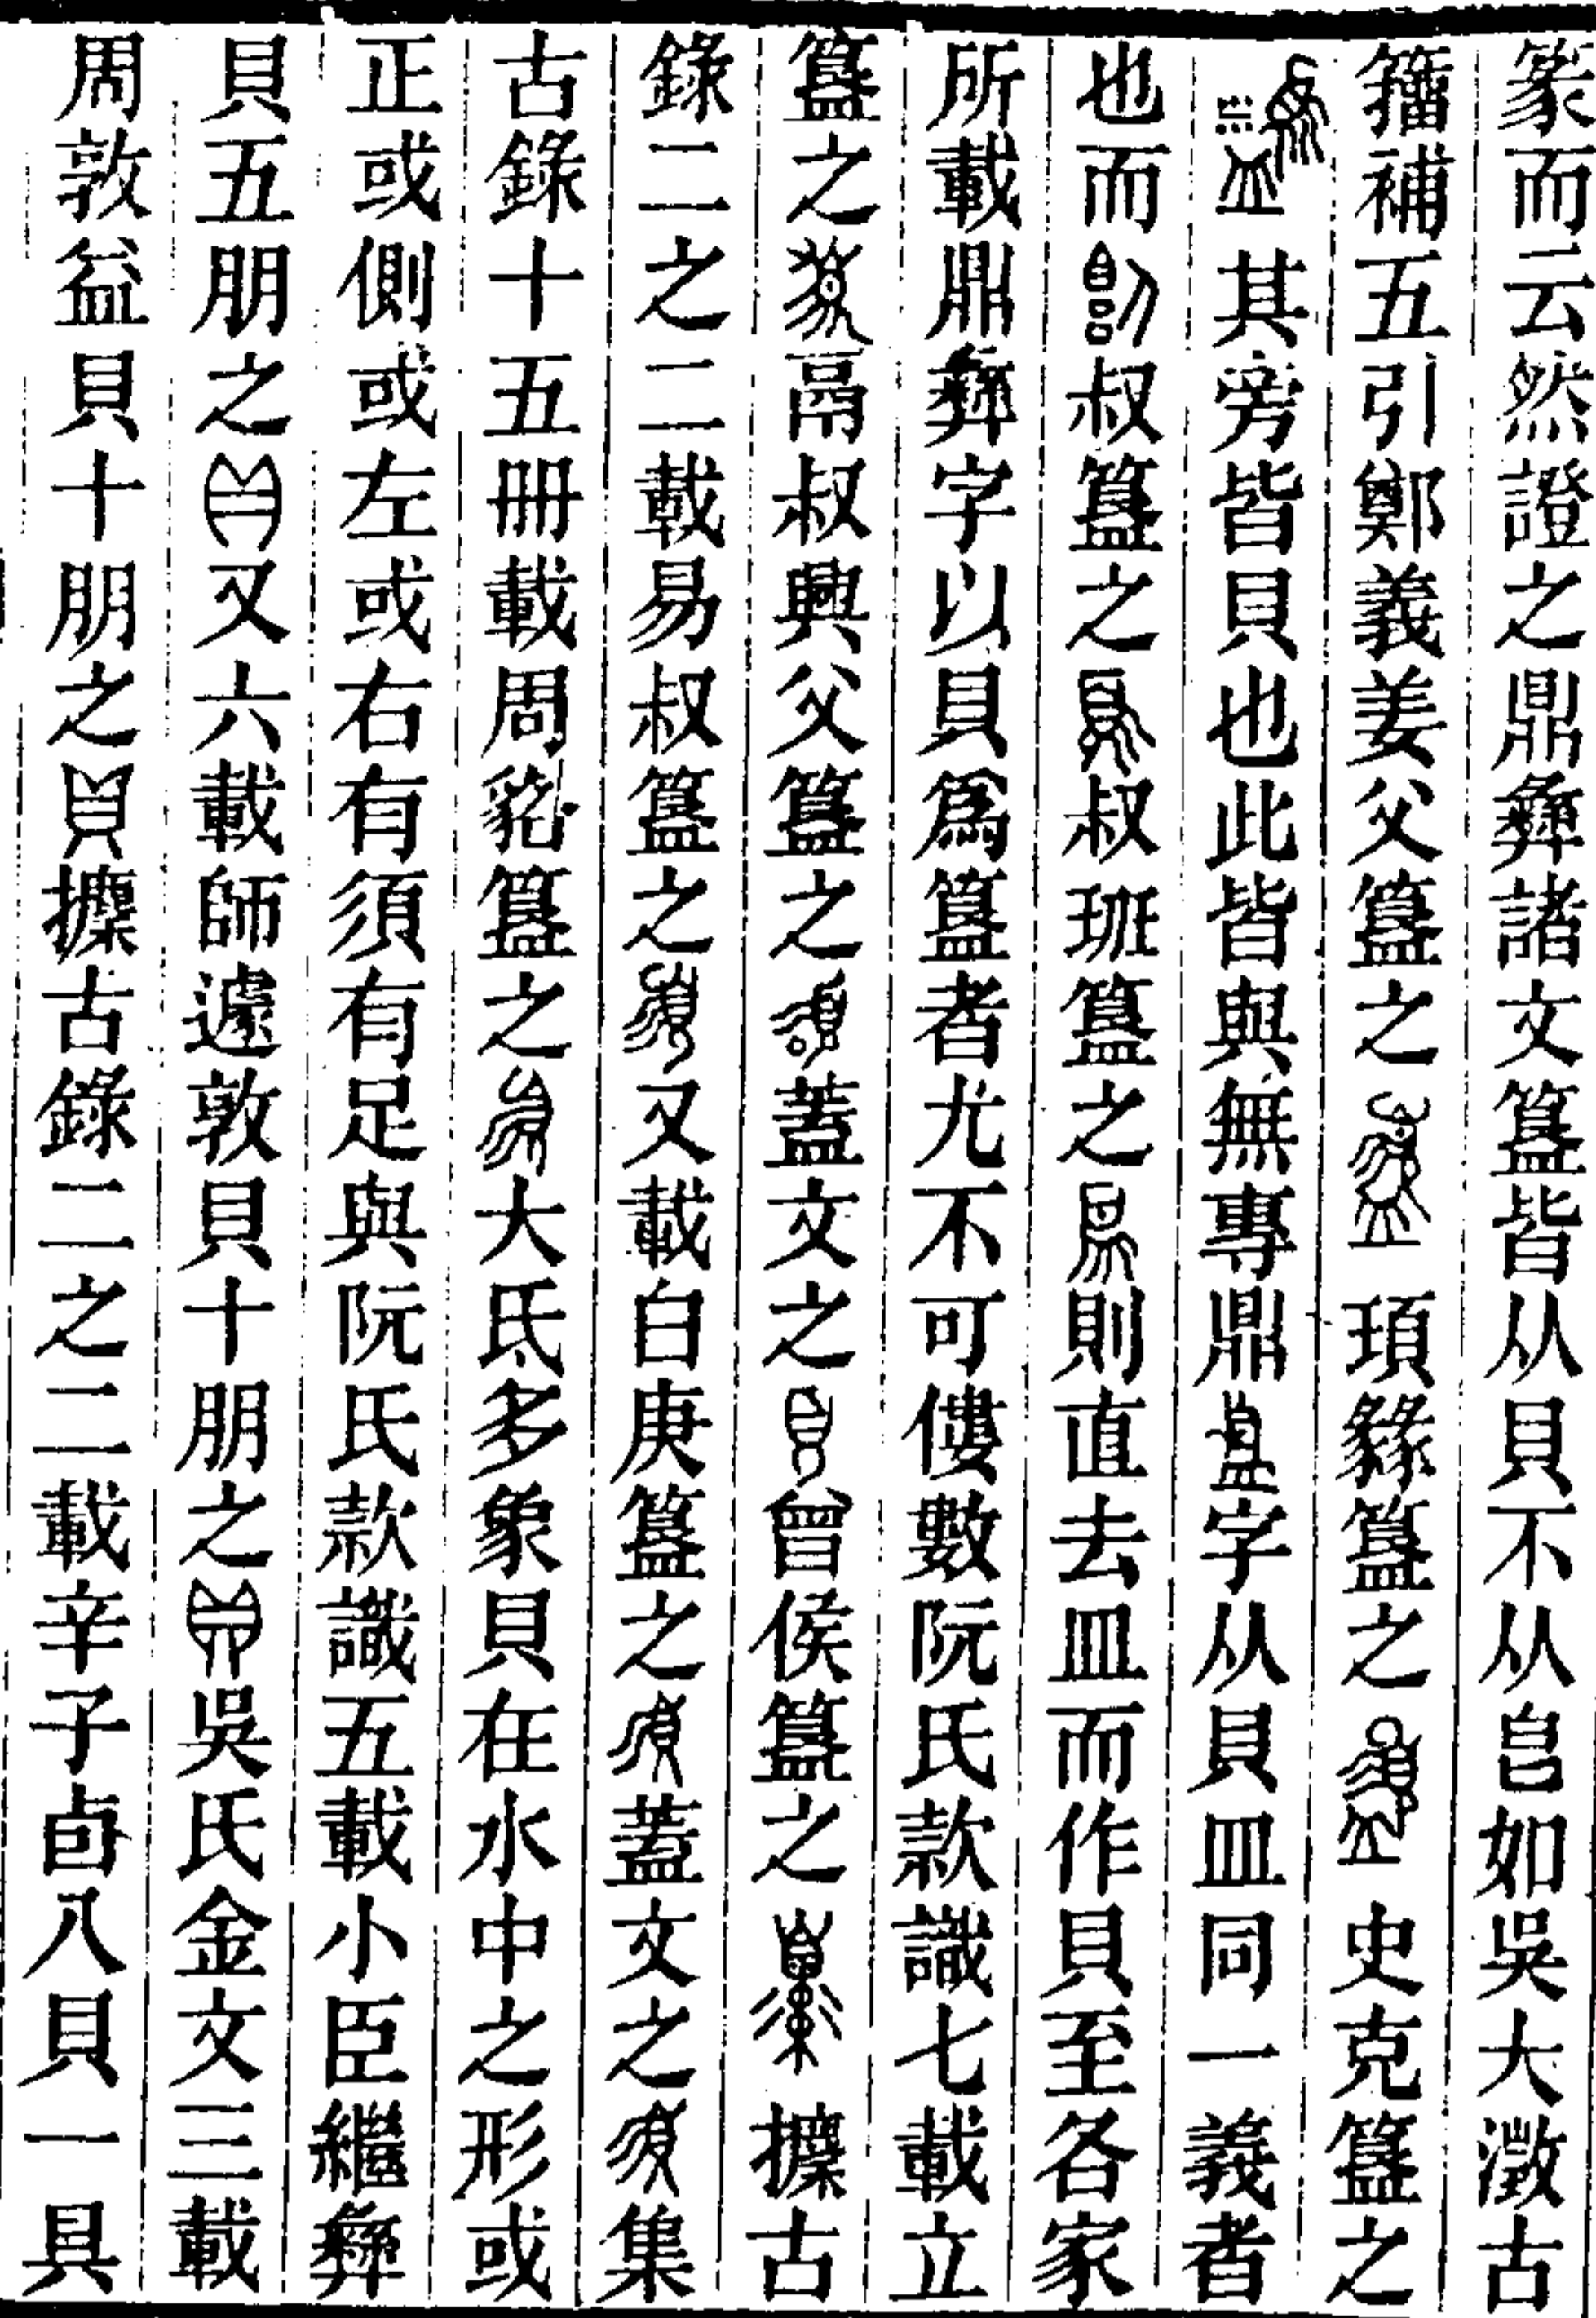 篆而云然證之鼎彝諸文簋皆从貝不从皀如吳大澂古
籀補五引鄭義姜父簋之項䜌簋之史克簋之
其旁皆貝也此皆與無專鼎字从貝皿同一義者
也而叔簋之叔班簋之則直去皿而作貝至各家
所載鼎彝字以貝爲簋者尤不可僂數阮氏款識七載立
簋之鬲叔興父簋之蓋文之曾侯簋之攈古
錄二之二載易叔簋之又載白庚簋之蓋文之集
古錄十五冊載周簋之大氐多象貝在水中之形或
正或側或左或右有須有足與阮氏款識五載小臣繼彝
貝五朋之又六載師遽敦貝十朋之吳氏金文三載
周敦益貝十朋之攈古錄二之二載辛子卣八貝一具